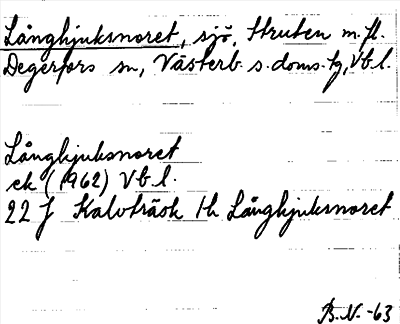 Långhjuksnoret, sjö, Struten m.fl.
Degerfors sn, Västerb. s. doms. tg, Vbl.
Långhjuksnoret
ek (1962) Vbl.
22 J Kalvträsk 1h Långhjuksnoret
B.N.-63